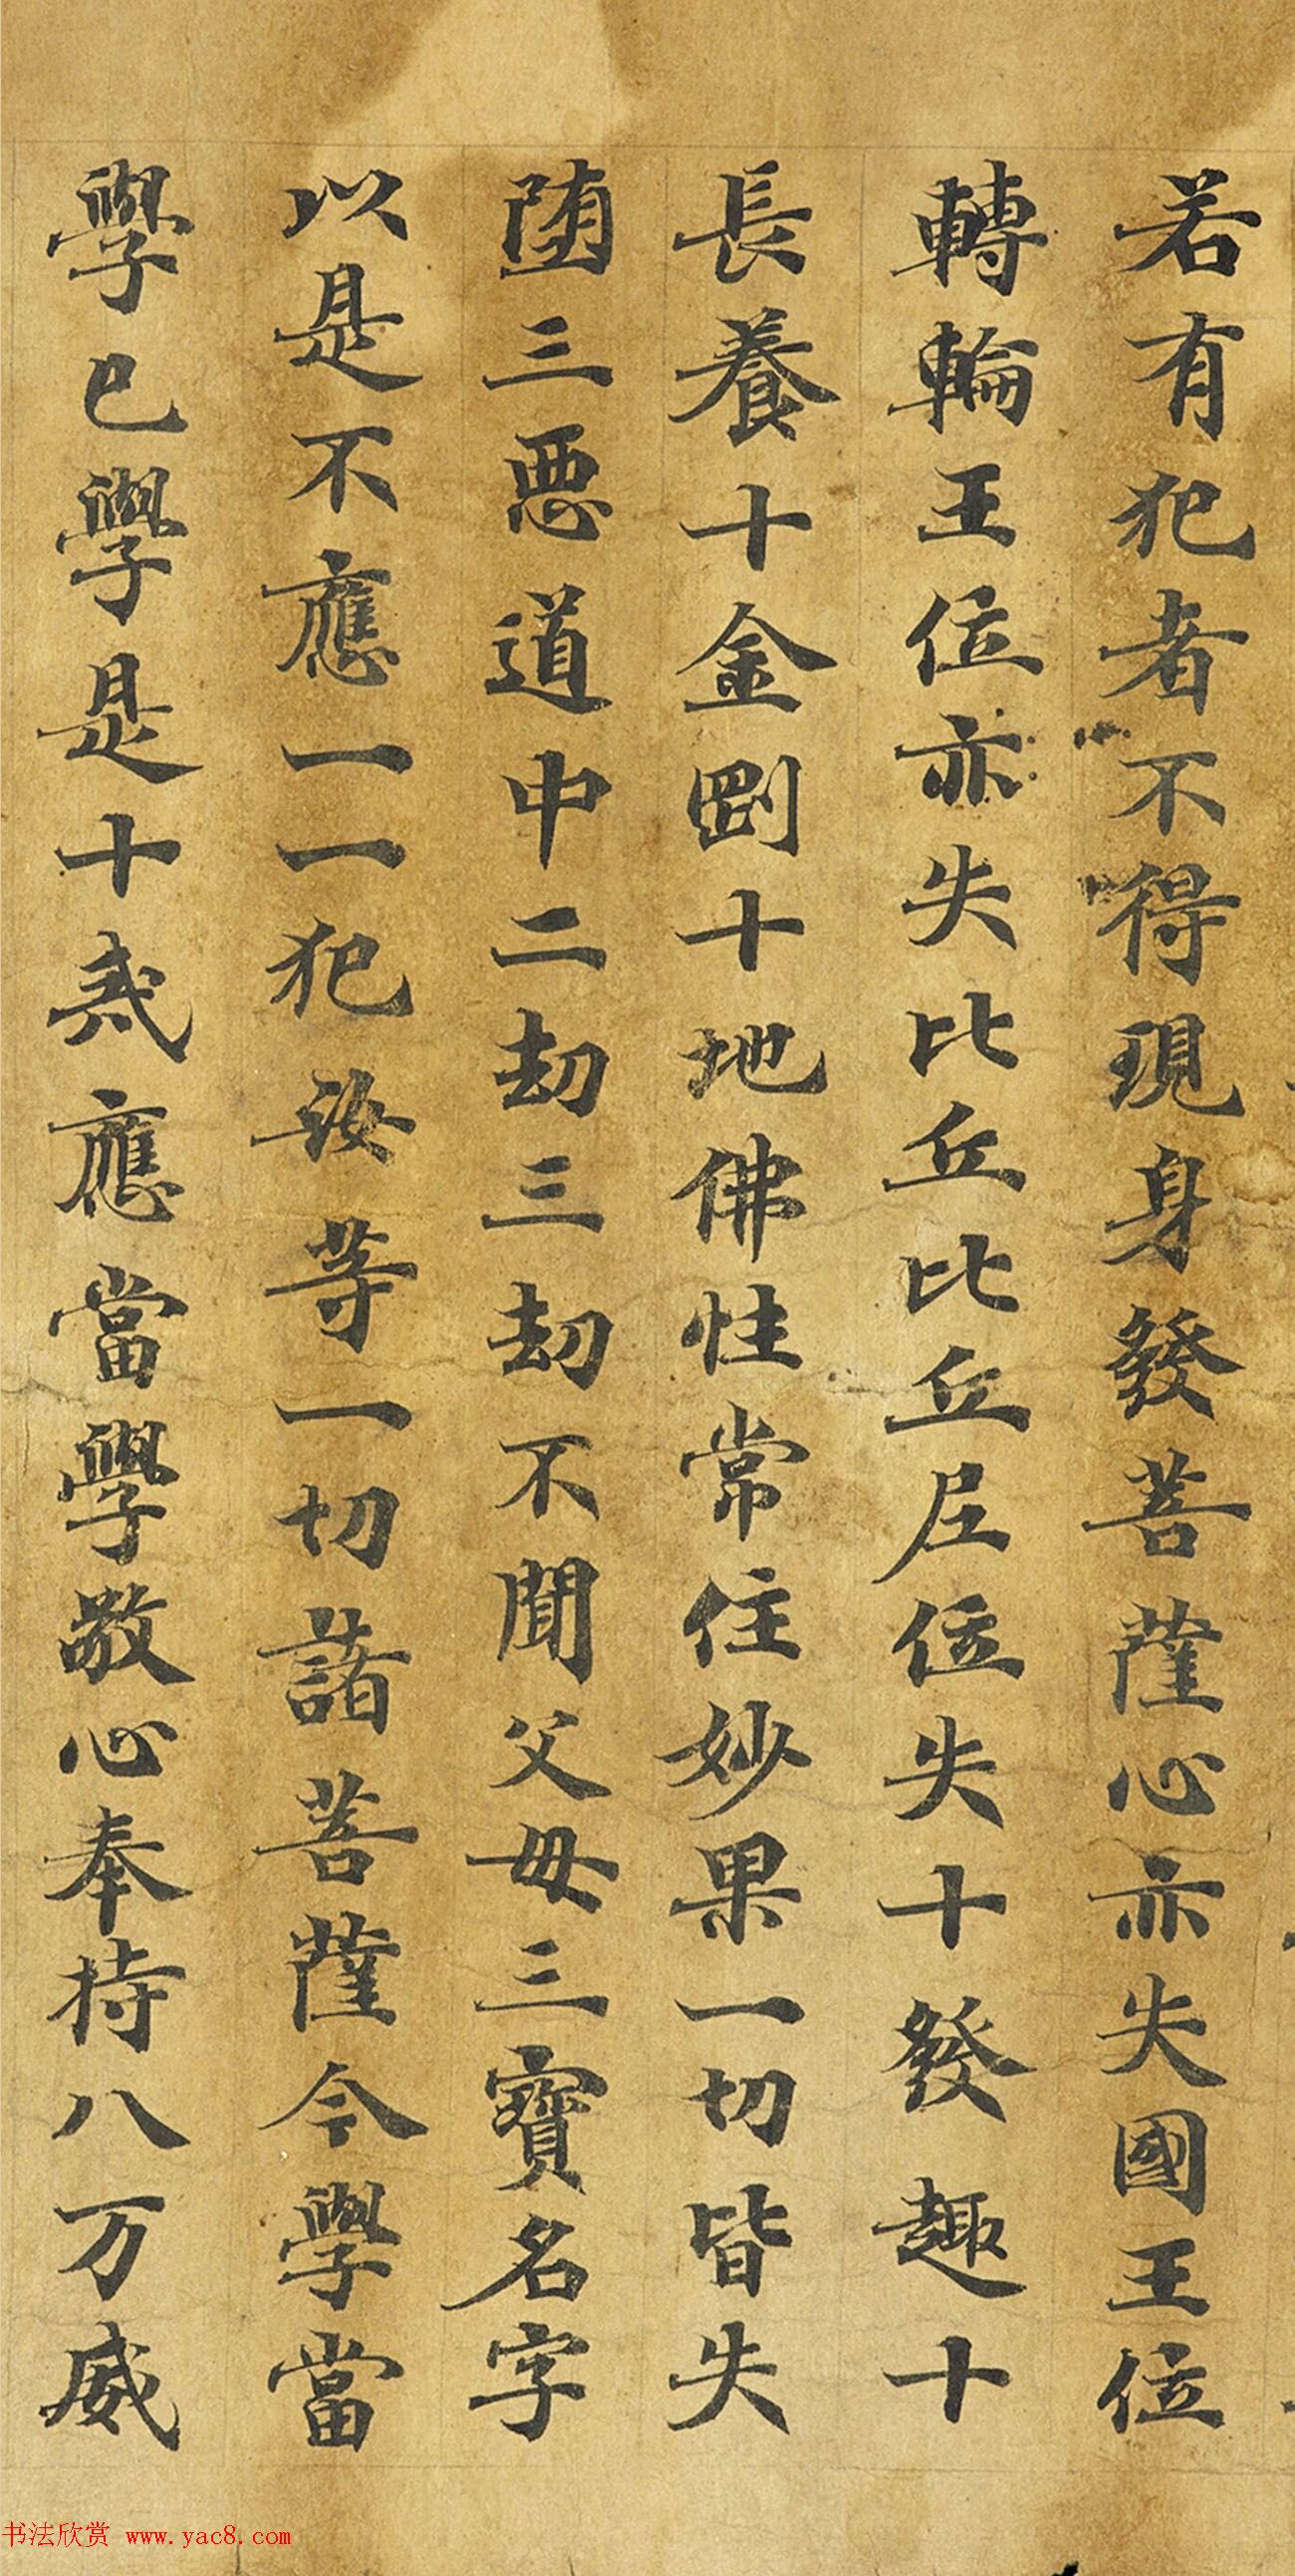 若有犯者不得現身發菩薩心亦失國王位
轉輪王位亦失比丘比丘尼位失十發趣十
長養十金剛十地佛性常住妙果一切皆失
墮三惡道中二劫三劫不聞父母三寶名字
以是不應一一犯汝等一切諸菩薩今學當
學已學是十戒應當學敬心奉持八万威
书法欣赏 www.yac8.com